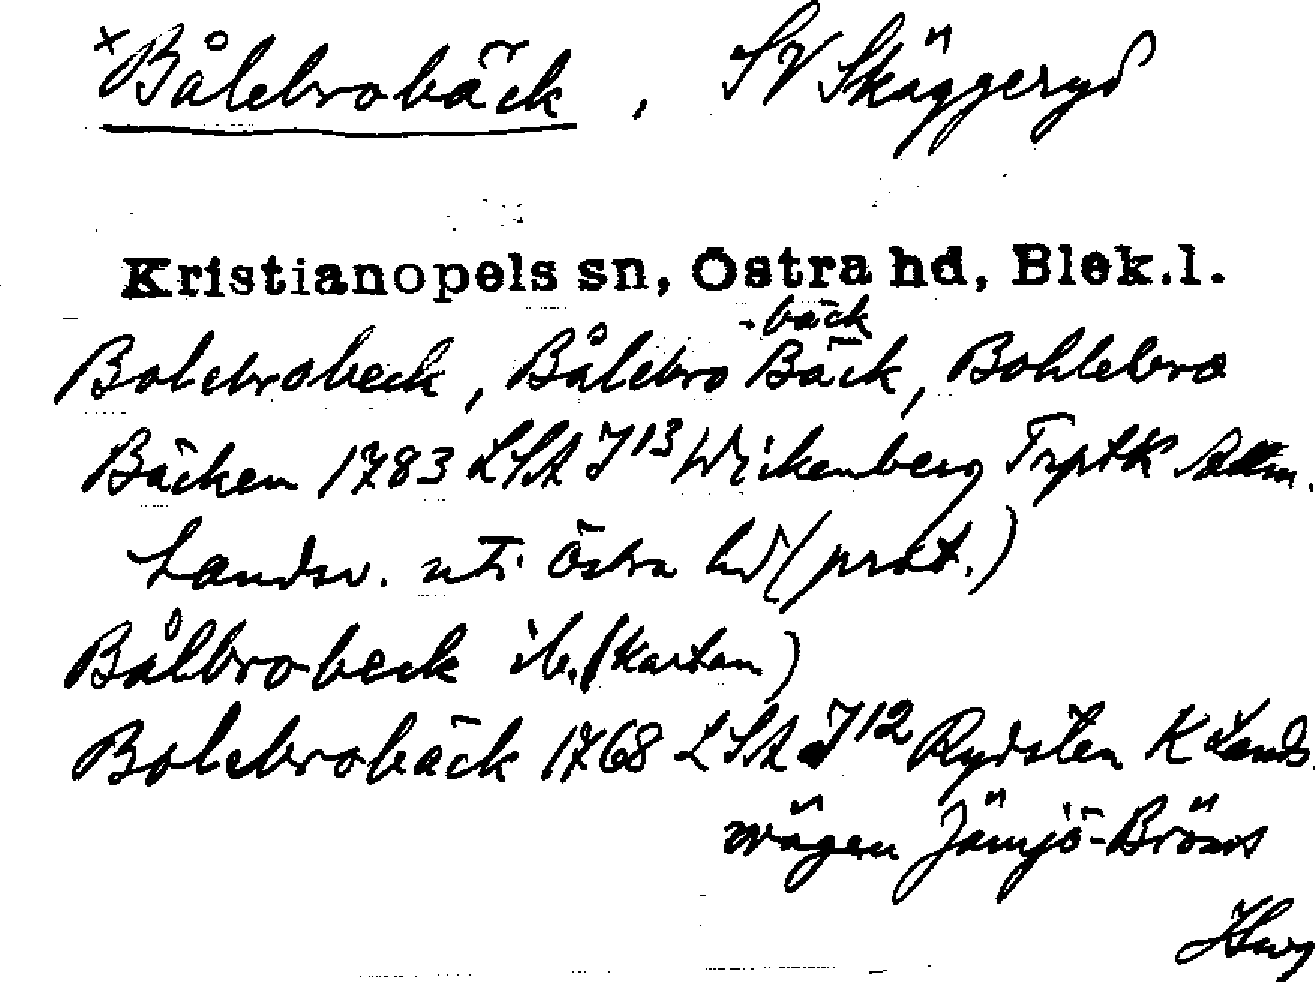 × Bålebrobäck, SV Skäggeryd
Kristianopels sn, Östra hd, Blek.l.
-bäck
Bolebrobeck, Bålebro Bäck, Bohlebro
Bäcken 1783 LSA J13 Wickenberg TrptK Allm.
Landsv. uti Östra hd (prot.)
Bålbrobeck ib. (kartan)
Bolebrobäck 1768 LSA J12 Rydsten K Lands
wägen Jämjö-Bröms